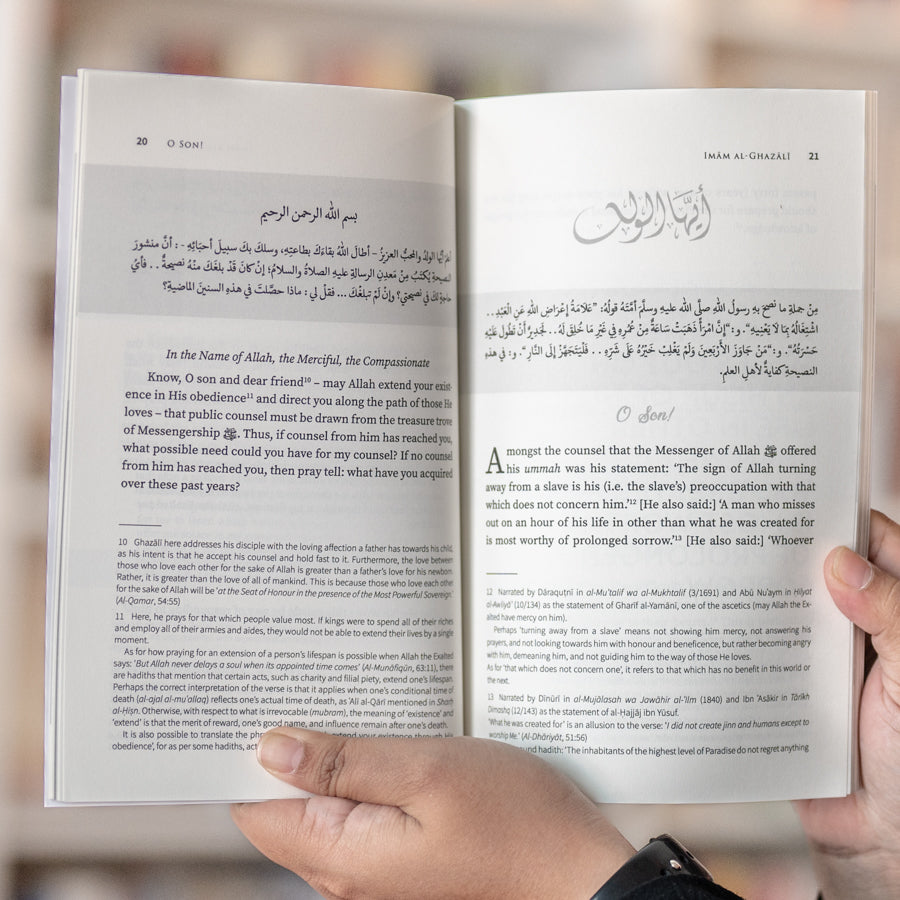 20 O SON!
بسم الله الرحمن الرحيم
اعلم أيُّها الولدُ والمحبُّ العزيزُ – أطالَ اللهُ بقاءَكَ بطاعتِهِ، وسلكَ بكَ سبيلَ أحبَّائِهِ - : أنَّ منشورَ
النصيحةِ يُكتَبُ مِنْ معدِنِ الرسالةِ عليهِ الصلاةُ والسلامُ؛ إنْ كانَ قَدْ بلغَكَ منْهُ نصيحةٌ . . فأيُّ
حاجةٍ لكَ في نصيحتي؟ وإنْ لَمْ تبلغْكَ ... فقلْ لي : ماذا حصَّلتَ في هذهِ السنينَ الماضيةِ؟
In the Name of Allah, the Merciful, the Compassionate
Know, O son and dear friend¹⁰ – may Allah extend your exist-
ence in His obedience¹¹ and direct you along the path of those He
loves – that public counsel must be drawn from the treasure trove
of Messengership ﷺ. Thus, if counsel from him has reached you,
what possible need could you have for my counsel? If no counsel
from him has reached you, then pray tell: what have you acquired
over these past years?
10 Ghazālī here addresses his disciple with the loving affection a father has towards his child,
as his intent is that he accept his counsel and hold fast to it. Furthermore, the love between
those who love each other for the sake of Allah is greater than a father's love for his newborn.
Rather, it is greater than the love of all of mankind. This is because those who love each other
for the sake of Allah will be 'at the Seat of Honour in the presence of the Most Powerful Sovereign.'
(Al-Qamar, 54:55)
11 Here, he prays for that which people value most. If kings were to spend all of their riches
and employ all of their armies and aides, they would not be able to extend their lives by a single
moment.
As for how praying for an extension of a person's lifespan is possible when Allah the Exalted
says: 'But Allah never delays a soul when its appointed time comes' (Al-Munāfiqūn, 63:11), there
are hadiths that mention that certain acts, such as charity and filial piety, extend one's lifespan.
Perhaps the correct interpretation of the verse is that it applies when one's conditional time of
death (al-ajal al-mu'allaq) reflects one's actual time of death, as 'Alī al-Qārī mentioned in Sharḥ
al-Ḥiṣn. Otherwise, with respect to what is irrevocable (mubram), the meaning of 'existence' and
'extend' is that the merit of reward, one's good name, and influence remain after one's death.
It is also possible to translate the phrase extend your existence through His
obedience', for as per some hadiths,
IMĀM AL-GHAZĀLĪ 21
أيُّهَا الولد
مِنْ جملةِ ما نصحَ بهِ رسولُ اللهِ صلَّى اللهُ عليهِ وسلَّمَ أمَّتَهُ قولُهُ: "عَلَامَةُ إِعْرَاضِ اللهِ عَنِ الْعَبْدِ . .
اشْتِغَالُهُ بِمَا لَا يَعْنِيهِ". و:"إِنَّ امْرَأً ذَهَبَتْ سَاعَةٌ مِنْ عُمُرِهِ فِي غَيْرِ مَا خُلِقَ لَهُ . . لَجَدِيرٌ أَنْ تَطُولَ عَلَيْهِ
حَسْرَتُهُ". و:"مَنْ جَاوَزَ الأَرْبَعِينَ وَلَمْ يَغْلِبْ خَيْرُهُ عَلَى شَرِّهِ . . فَلْيَتَجَهَّزْ إِلَى النَّارِ". و: في هذهِ
النصيحةِ كفايةٌ لأهلِ العلمِ.
O Son!
Amongst the counsel that the Messenger of Allah ﷺ offered
his ummah was his statement: 'The sign of Allah turning
away from a slave is his (i.e. the slave's) preoccupation with that
which does not concern him.'¹² [He also said:] 'A man who misses
out on an hour of his life in other than what he was created for
is most worthy of prolonged sorrow.'¹³ [He also said:] 'Whoever
12 Narrated by Dāraquṭnī in al-Mu'talif wa al-Mukhtalif (3/1691) and Abū Nu'aym in Ḥilyat
al-Awliyā' (10/134) as the statement of Gharīf al-Yamānī, one of the ascetics (may Allah the Ex-
alted have mercy on him).
Perhaps 'turning away from a slave' means not showing him mercy, not answering his
prayers, and not looking towards him with honour and beneficence, but rather becoming angry
with him, demeaning him, and not guiding him to the way of those He loves.
As for 'that which does not concern one', it refers to that which has no benefit in this world or
the next.
13 Narrated by Dīnūrī in al-Mujālasah wa Jawāhir al-'Ilm (1840) and Ibn 'Asākir in Tārīkh
Dimashq (12/143) as the statement of al-Ḥajjāj ibn Yūsuf.
'What he was created for' is an allusion to the verse: 'I did not create jinn and humans except to
worship Me.' (Al-Dhāriyāt, 51:56)
hadith: 'The inhabitants of the highest level of Paradise do not regret anything